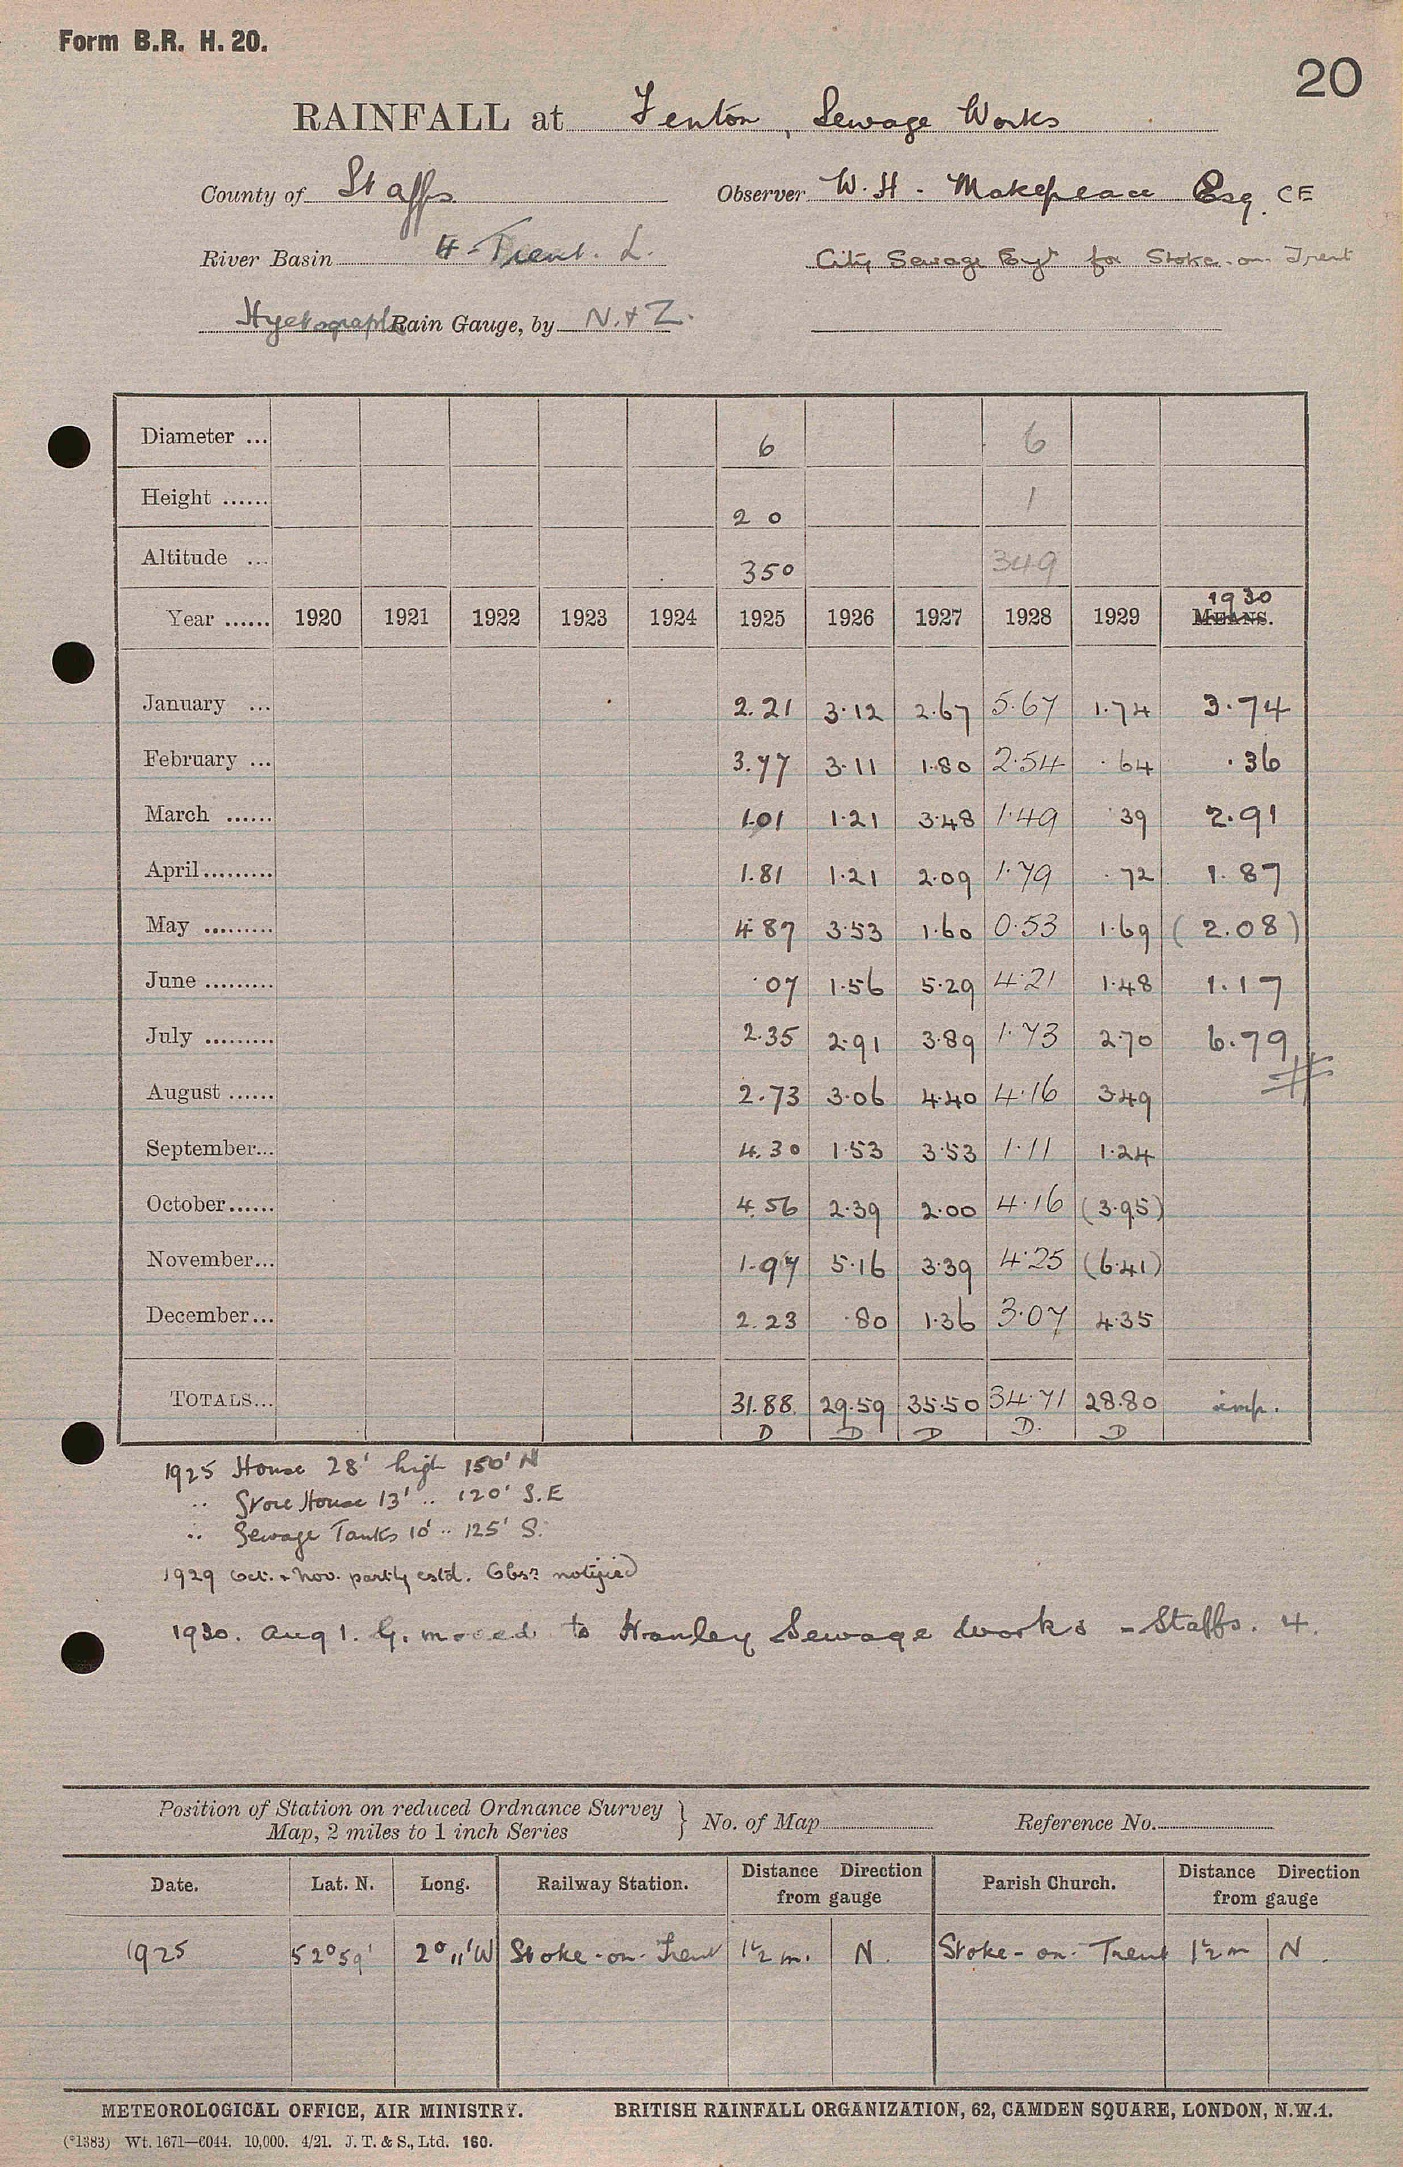 Form B.R. H. 20.
20
RAINFALL at Fenton, Sewage Works
County of Staffs Observer W. H. Makepeace Esq. CE
River Basin 4 - Trent. L. City Sewage Engr for Stoke-on-Trent
Hyetograph Rain Gauge, by N. & Z.
Diameter ... 6 6
Height ...... 2 0 1
Altitude ... 350 349
1930
Year ...... 1920 1921 1922 1923 1924 1925 1926 1927 1928 1929 MEANS.
January ... 2.21 3.12 2.67 5.67 1.74 3.74
February ... 3.77 3.11 1.80 2.54 .64 .36
March ...... 1.01 1.21 3.48 1.49 .39 2.91
April ......... 1.81 1.21 2.09 1.79 .72 1.87
May ......... 4.87 3.53 1.60 0.53 1.69 (2.08)
June ......... .07 1.56 5.29 4.21 1.48 1.17
July ......... 2.35 2.91 3.89 1.73 2.70 6.79
August ...... 2.73 3.06 4.40 4.16 3.49
September... 4.30 1.53 3.53 1.11 1.24
October...... 4.56 2.39 2.00 4.16 (3.95)
November... 1.97 5.16 3.39 4.25 (6.41)
December... 2.23 .80 1.36 3.07 4.35
TOTALS... 31.88 29.59 35.50 34.71 28.80 imp.
D D D D. D
1925 House 28' high 150' N
" Store House 13' " 120' S.E
" Sewage Tanks 10' " 125' S.
1929 Oct. & Nov. partly estd. Obsr notified
1930. Aug 1. G. moved to Hanley Sewage Works - Staffs. 4.
Position of Station on reduced Ordnance Survey Map, 2 miles to 1 inch Series } No. of Map Reference No.
Date. Lat. N. Long. Railway Station. Distance Direction from gauge Parish Church. Distance Direction from gauge
1925 52°59' 2°11'W Stoke-on-Trent 1½ m. N. Stoke-on-Trent 1½ m N.
METEOROLOGICAL OFFICE, AIR MINISTRY. BRITISH RAINFALL ORGANIZATION, 62, CAMDEN SQUARE, LONDON, N.W.1.
(*1383) Wt. 1671—C044. 10,000. 4/21. J. T. & S., Ltd. 160.